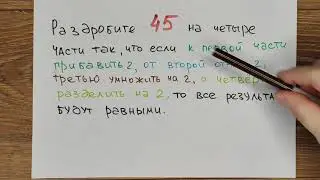 Раздробите 45 на четыре
части так, что если к первой части
прибавить 2, от второй отнять 2,
третью умножить на 2, а четвер
разделить на 2, то все результа
будут равными.